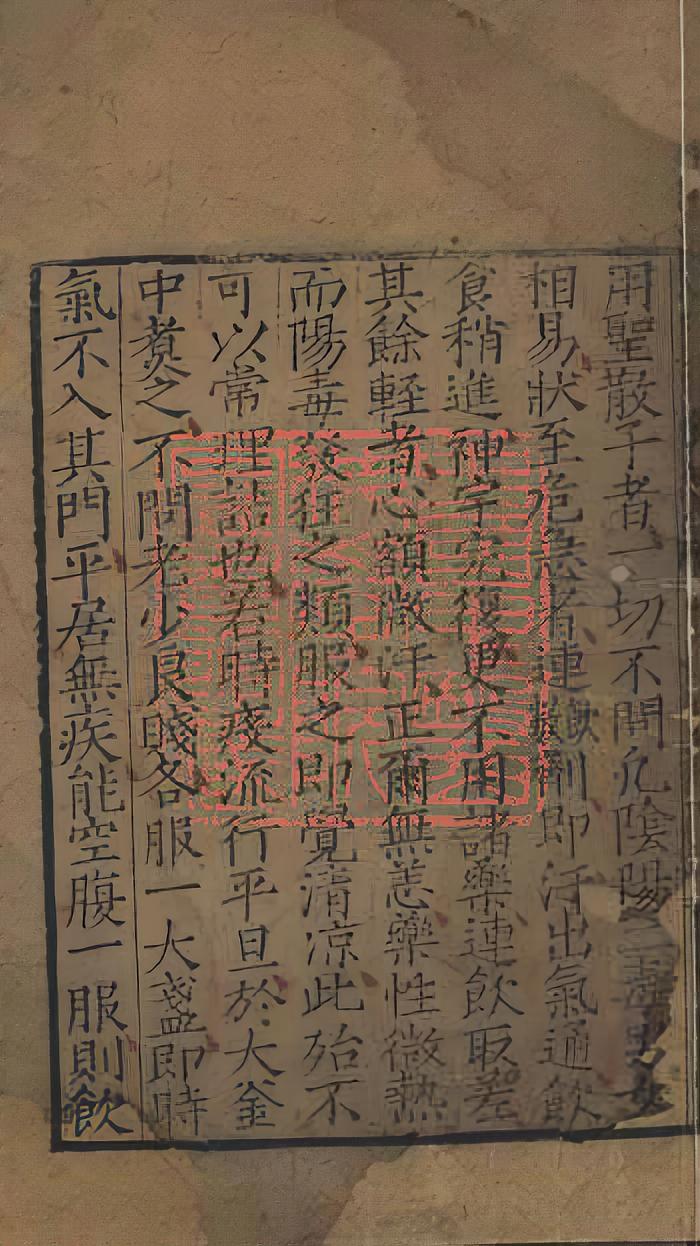 用聖散子者一切不問凡陰陽二毒男女
相易狀至危急者連飲數劑即汗出氣通飲
食稍進神宇完復更不用諸藥連飲取差
其餘輕者心額微汗正爾無恙藥性微熱
而陽毒發狂之類服之即覺清涼此殆不
可以常理詰也若時疫流行平旦於大釜
中煑之不問老少良賤各服一大盞即時
氣不入其門平居無疾能空腹一服則飲